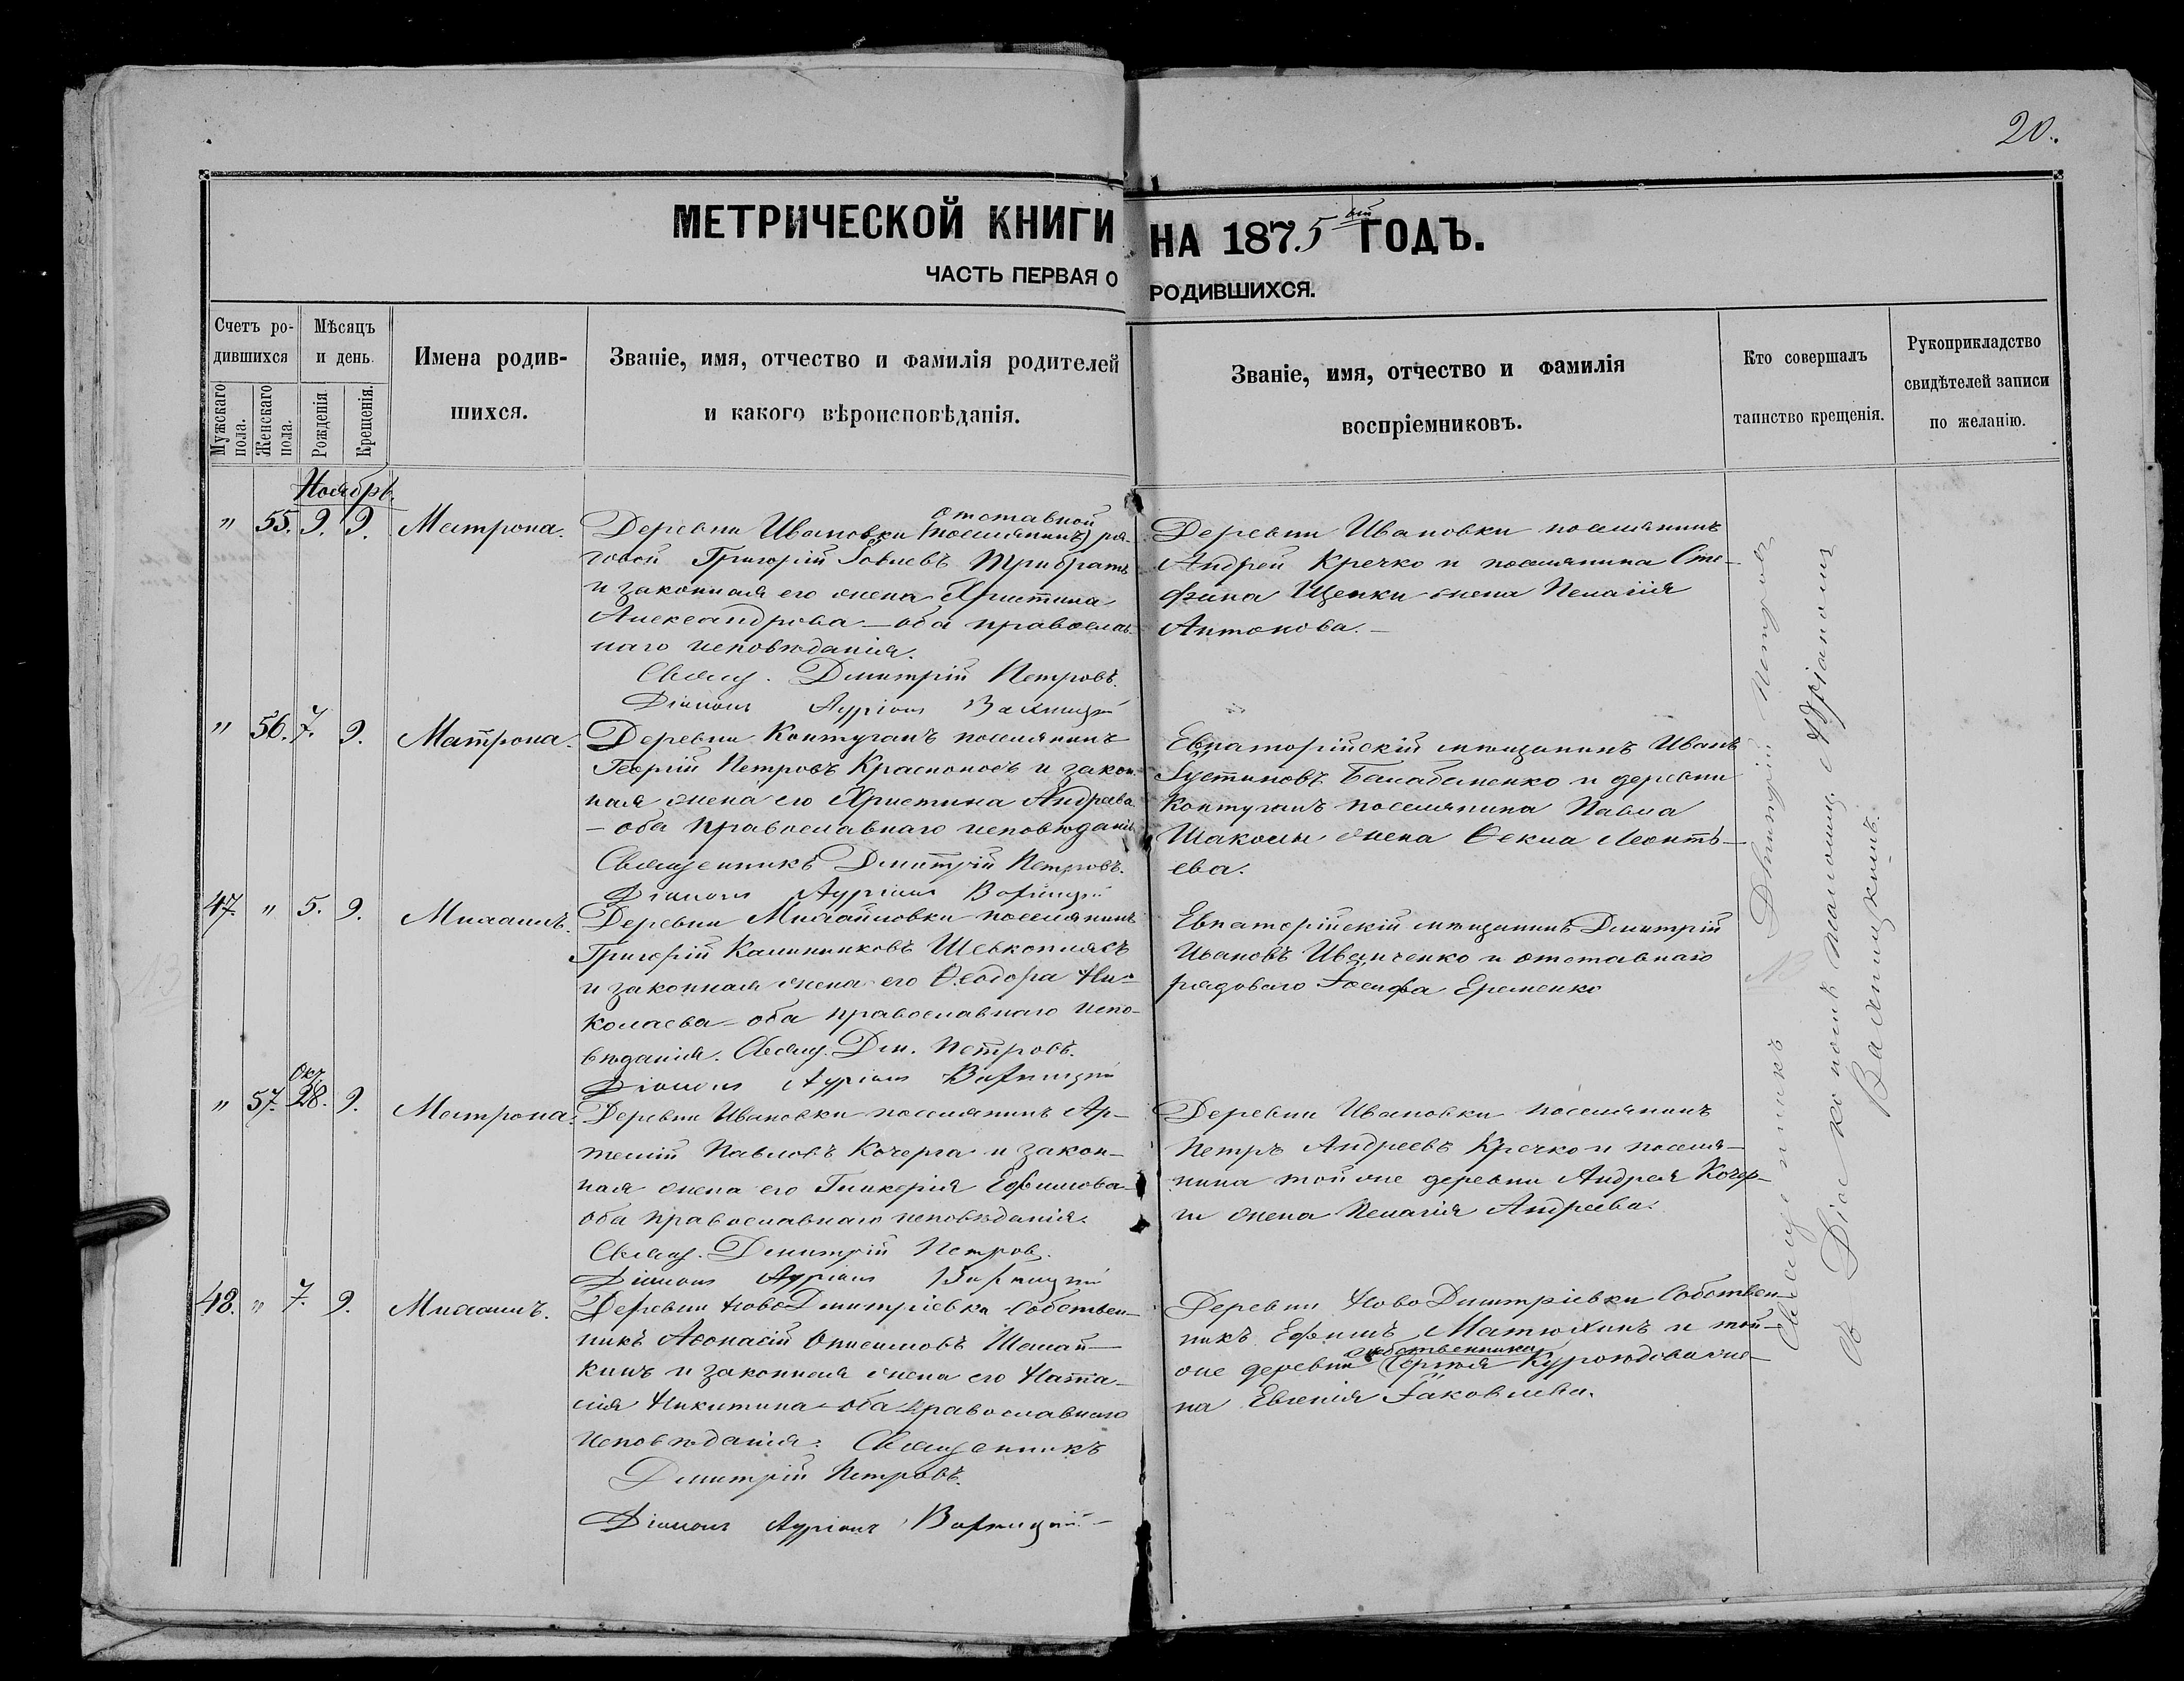 20.
МЕТРИЧЕСКОЙ КНИГИ НА 1875ый ГОДЪ.
ЧАСТЬ ПЕРВАЯ О РОДИВШИХСЯ.
Счетъ ро-
дившихся
Мужскаго пола.
Женскаго пола.
Мѣсяцъ
и день.
Рожденія.
Крещенія.
Имена родив-
шихся.
Званіе, имя, отчество и фамилія родителей
и какого вѣроисповѣданія.
Званіе, имя, отчество и фамилія
воспріемниковъ.
Кто совершалъ
таинство крещенія.
Рукоприкладство
свидѣтелей записи
по желанію.
Ноябрь.
" 55. 9. 9. Матрона.
отставной
Деревни Ивановки (поселянинъ) ря-
довой Григорій Іовлевъ Трибратъ
и законная его жена Христина
Александрова — оба православ-
наго исповѣданія.
Свящ. Димитрій Петровъ.
Діаконъ
Деревни Ивановки поселянинъ
Андрей Кречко и поселянина Сте-
фана Щепки жена Пелагія
Антонова. —
" 56. 7. 9. Матрона.
Деревни Контуганъ поселянинъ
Георгій Петровъ Красноносъ и закон-
ная жена его Христина Андреева
— оба православнаго исповѣданія
Священникъ Димитрій Петровъ.
Діаконъ
Евпаторійскій мѣщанинъ Иванъ
Іустиновъ Балабаненко и деревни
Контуганъ поселянина Павла
Шаколы жена Ѳекла Леонть-
ева.
47. " 5. 9. Михаилъ.
Деревни Михайловки поселянинъ
Григорій Калинниковъ Шевкоплясъ
и законная жена его Ѳеодора Ни-
колаева — оба православнаго испо-
вѣданія. Свящ. Дим. Петровъ.
Діаконъ
Евпаторійскій мѣщанинъ Димитрій
Ивановъ Иванченко и отставнаго
рядоваго Іосифа Еременко
Окт.
" 57. 28. 9. Матрона.
Деревни Ивановки поселянинъ Ар-
темій Павловъ Кочерга и закон-
ная жена его Гликерія Ефимова —
оба православнаго исповѣданія.
Свящ. Димитрій Петров.
Діаконъ
Деревни Ивановки поселянинъ
Петръ Андреевъ Кречко и поселя-
нина той же деревни Андрея Кочер-
ги жена Пелагія Андреева.
48. " 7. 9. Михаилъ.
Деревни Ново-Димитріевки Собствен-
никъ Аѳонасій Онисимовъ Шамай-
кинъ и законная жена его Ната-
лія Никитина — оба православнаго
исповѣданія. Священникъ
Димитрій Петровъ.
Діаконъ
Деревни НовоДимитріевки Собствен-
никъ Ефимъ Матюхинъ и той-
собственника
же деревни Сергія Курождова же-
на Евгенія Іаковлева.
Священникъ Димитрій Петровъ
съ Діакономъ Адріаномъ